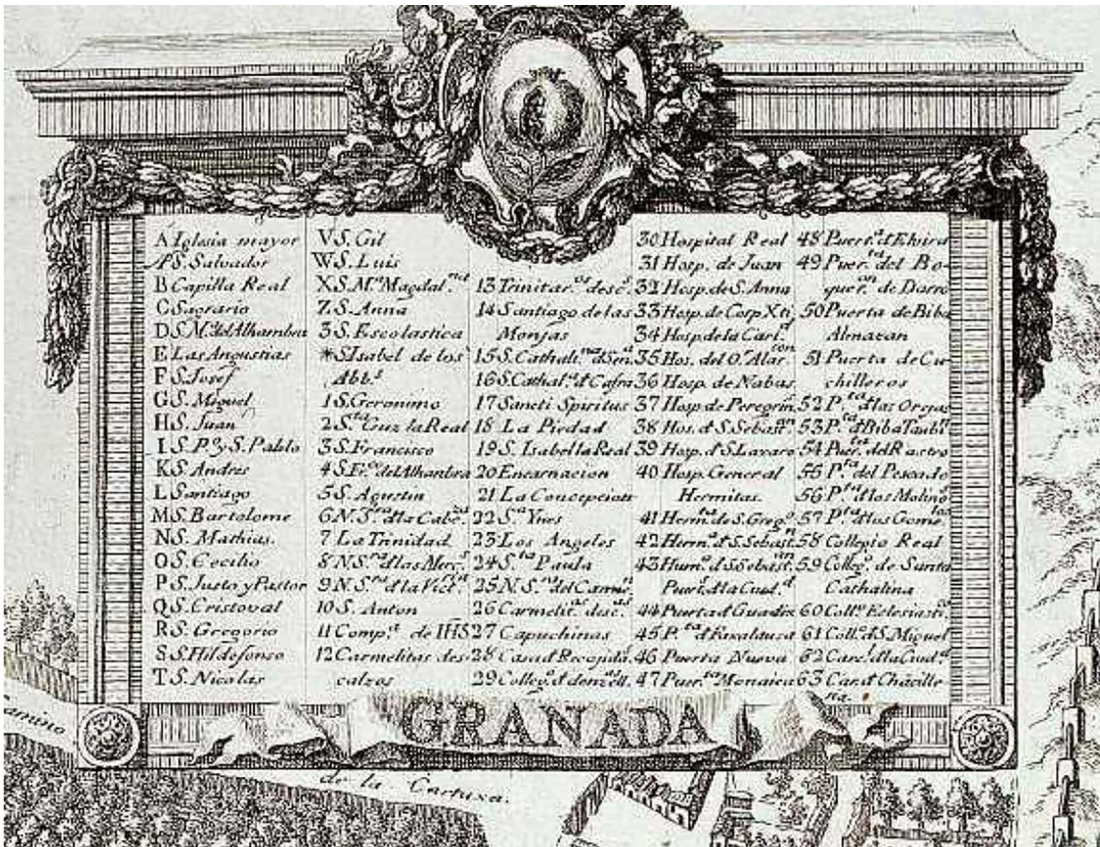 A Iglesia mayor
S. Salvador
B Capilla Real
C Sagrario
D S. Mª. del Alhambra
E Las Angustias
F S. Josef
G S. Miguel
H S. Juan
I S. P.º y S. Pablo
K S. Andres
L Santiago
M S. Bartolome
N S. Mathias.
O S. Cecilio
P S. Justo y Pastor
Q S. Cristoval
R S. Gregorio
S S. Hildefonso
T S. Nicolas
V S. Gil
W S. Luis
X S. Mª Magdal.ⁿᵃ
Z S. Anna
3 S. Escolastica
* S. Isabel de los
Abb.ˢ
1 S. Geronimo
2 S.ᵗᵃ Cruz la Real
3 S. Francisco
4 S. Fr.ᶜᵒ del Alhambra
5 S. Agustin
6 N. S.ʳᵃ d la Cabe.ᶻᵃ
7 La Trinidad
8 N. S.ʳᵃ d las Merc.ˢ
9 N. S.ʳᵃ d la Vict.ᵃ
10 S. Anton
11 Comp.ª de IHS
12 Carmelitas des-
calzos
13 Trinitar.ᵒˢ desc.ˢ
14 Santiago de las
Monjas
15 S. Cathali.ⁿᵃ d Sen.ᵃ
16 S. Cathal.ⁿᵃ d Cafra
17 Sancti Spiritus
18 La Piedad
19 S. Isabella Real
20 Encarnacion
21 La Concepcion
22 S.ᵃ Ynes
23 Los Angeles
24 S.ᵗᵃ Paula
25 N. S.ʳᵃ del Carme.ⁿ
26 Carmelit.ᵃˢ desc.ᵃˢ
27 Capuchinas
28 Casa d Recojida.ˢ
29 Colleg.º d donzell.
30 Hospital Real
31 Hosp. de Juan
32 Hosp. de S. Anna
33 Hosp. de Corp. Xti
34 Hosp. de la Cari.ᵈ
35 Hos. del O.ʳ Alar.ᶜᵒⁿ
36 Hosp. de Nabas
37 Hosp. de Peregrin.
38 Hos. d S. Sebast.ⁿ
39 Hosp. d S. Lazaro
40 Hosp. General
Hermitas.
41 Herm.ᵗᵃ de S. Greg.º
42 Herm.ᵃ d S. Sebast.ⁿ
43 Hum.º d S. Sebast.ⁱᵃⁿ
Puer.ᵗ d la Ciud.ᵈ
44 Puerta d Guadix
45 P.ᵗᵃ d Faxalausa
46 Puerta Nueva
47 Puer.ᵗᵃ Monaica
48 Puert.ᵃ d Elvira
49 Puer.ᵗᵃ del Bo-
quer.ᵒⁿ de Darro
50 Puerta de Biba
Almazan
51 Puerta de Cu-
chilleros
52 P.ᵗᵃ d las Orejas
53 P.ᵗᵃ d Biba Taub.ⁿ
54 Puer.ᵗᵃ del Rastro
55 P.ᵗᵃ del Pescado
56 P.ᵗᵃ d los Molino
57 P.ᵗᵃ d los Gome.ˡᵒˢ
58 Collegio Real
59 Colleg.º de Santa
Cathalina
60 Coll.º Eclesiast.ᶜᵒ
61 Coll.º d S. Miguel
62 Car.ˡ d la Ciud.ᵈ
63 Car. d Chacille
ria.
GRANADA
camino
de la Cartuxa.